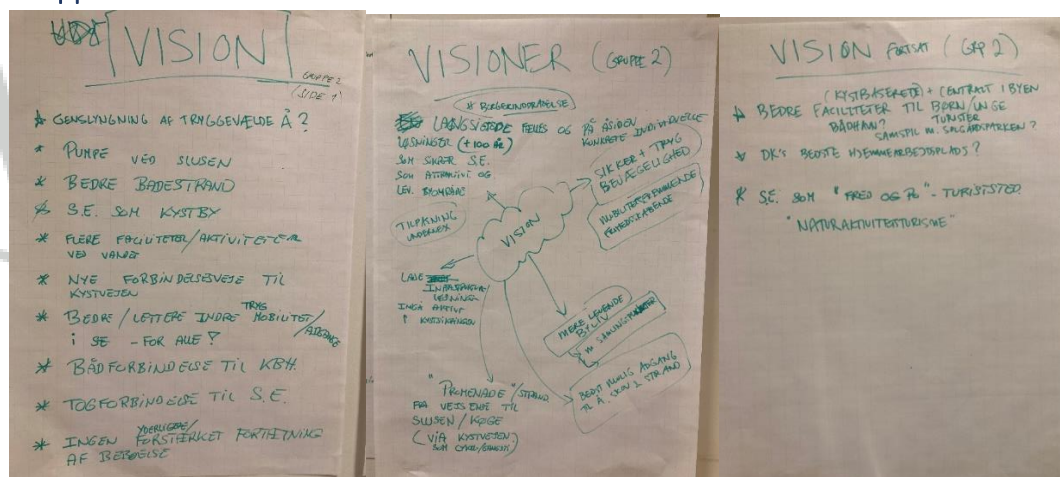 VISION
GRUPPE 2
SIDE 1
* GENSLYNGNING AF TRYGGEVÆLDE Å ?
* PUMPE VED SLUSEN
* BEDRE BADESTRAND
* S.E. SOM KYSTBY
* FLERE FACILITETER/AKTIVITETER
VED VANDET
* NYE FORBINDELSESVEJE TIL
KYSTVEJEN
* BEDRE/LETTERE INDRE TRYG MOBILITET/
I SE - FOR ALLE
* BÅDFORBINDELSE TIL KBH.
* TOGFORBINDELSE TIL S.E.
* INGEN YDERLIGERE/
FORSTÆRKET FORTÆTNING
AF BEBOELSE
VISIONER (GRUPPE 2)
* BORGERINDDRAGELSE
LANGSIGTEDE FELLES OG PÅ ÅSIDEN
LØSNINGER (+100 ÅR) KONKRETE INDIVIDUELLE
SOM SIKRER S.E.
SOM ATTRAKTIVT OG
LEV. BYOMRÅDE
SIKKER + TRYG
BEVÆGELIGHED
MOBILITETSFREMMENDE
TILPASNING
UNDERVEJS
VISION
LADE
INFRASTRUKTUR/
LØSNINGER
INGÅ AKTIVT
I KYSTSIKRINGEN
MERE LEVENDE
BYLIV
M SAMLINGSPUNKTER
BEDST MULIG ADGANG
TIL Å, SKOV & STRAND
"PROMENADE"/STRAND
FRA VEJS ENDE TIL
SLUSEN/KØGE
(VIA KYSTVEJEN)
SOM CYKEL/
VISION FORTSAT (GRP 2)
(KYSTBASEREDE) + CENTRALT I BYEN
* BEDRE FACILITETER TIL BØRN/UNGE
TURISTER
BÅDHAVN? SAMSPIL M. SALGÅRDSPARKEN?
* DK'S BEDSTE HJEMMEARBEJDSPLADS?
* S.E. SOM "FRED OG RO"-TURISTSTED
"NATURAKTIVITETSTURISME"